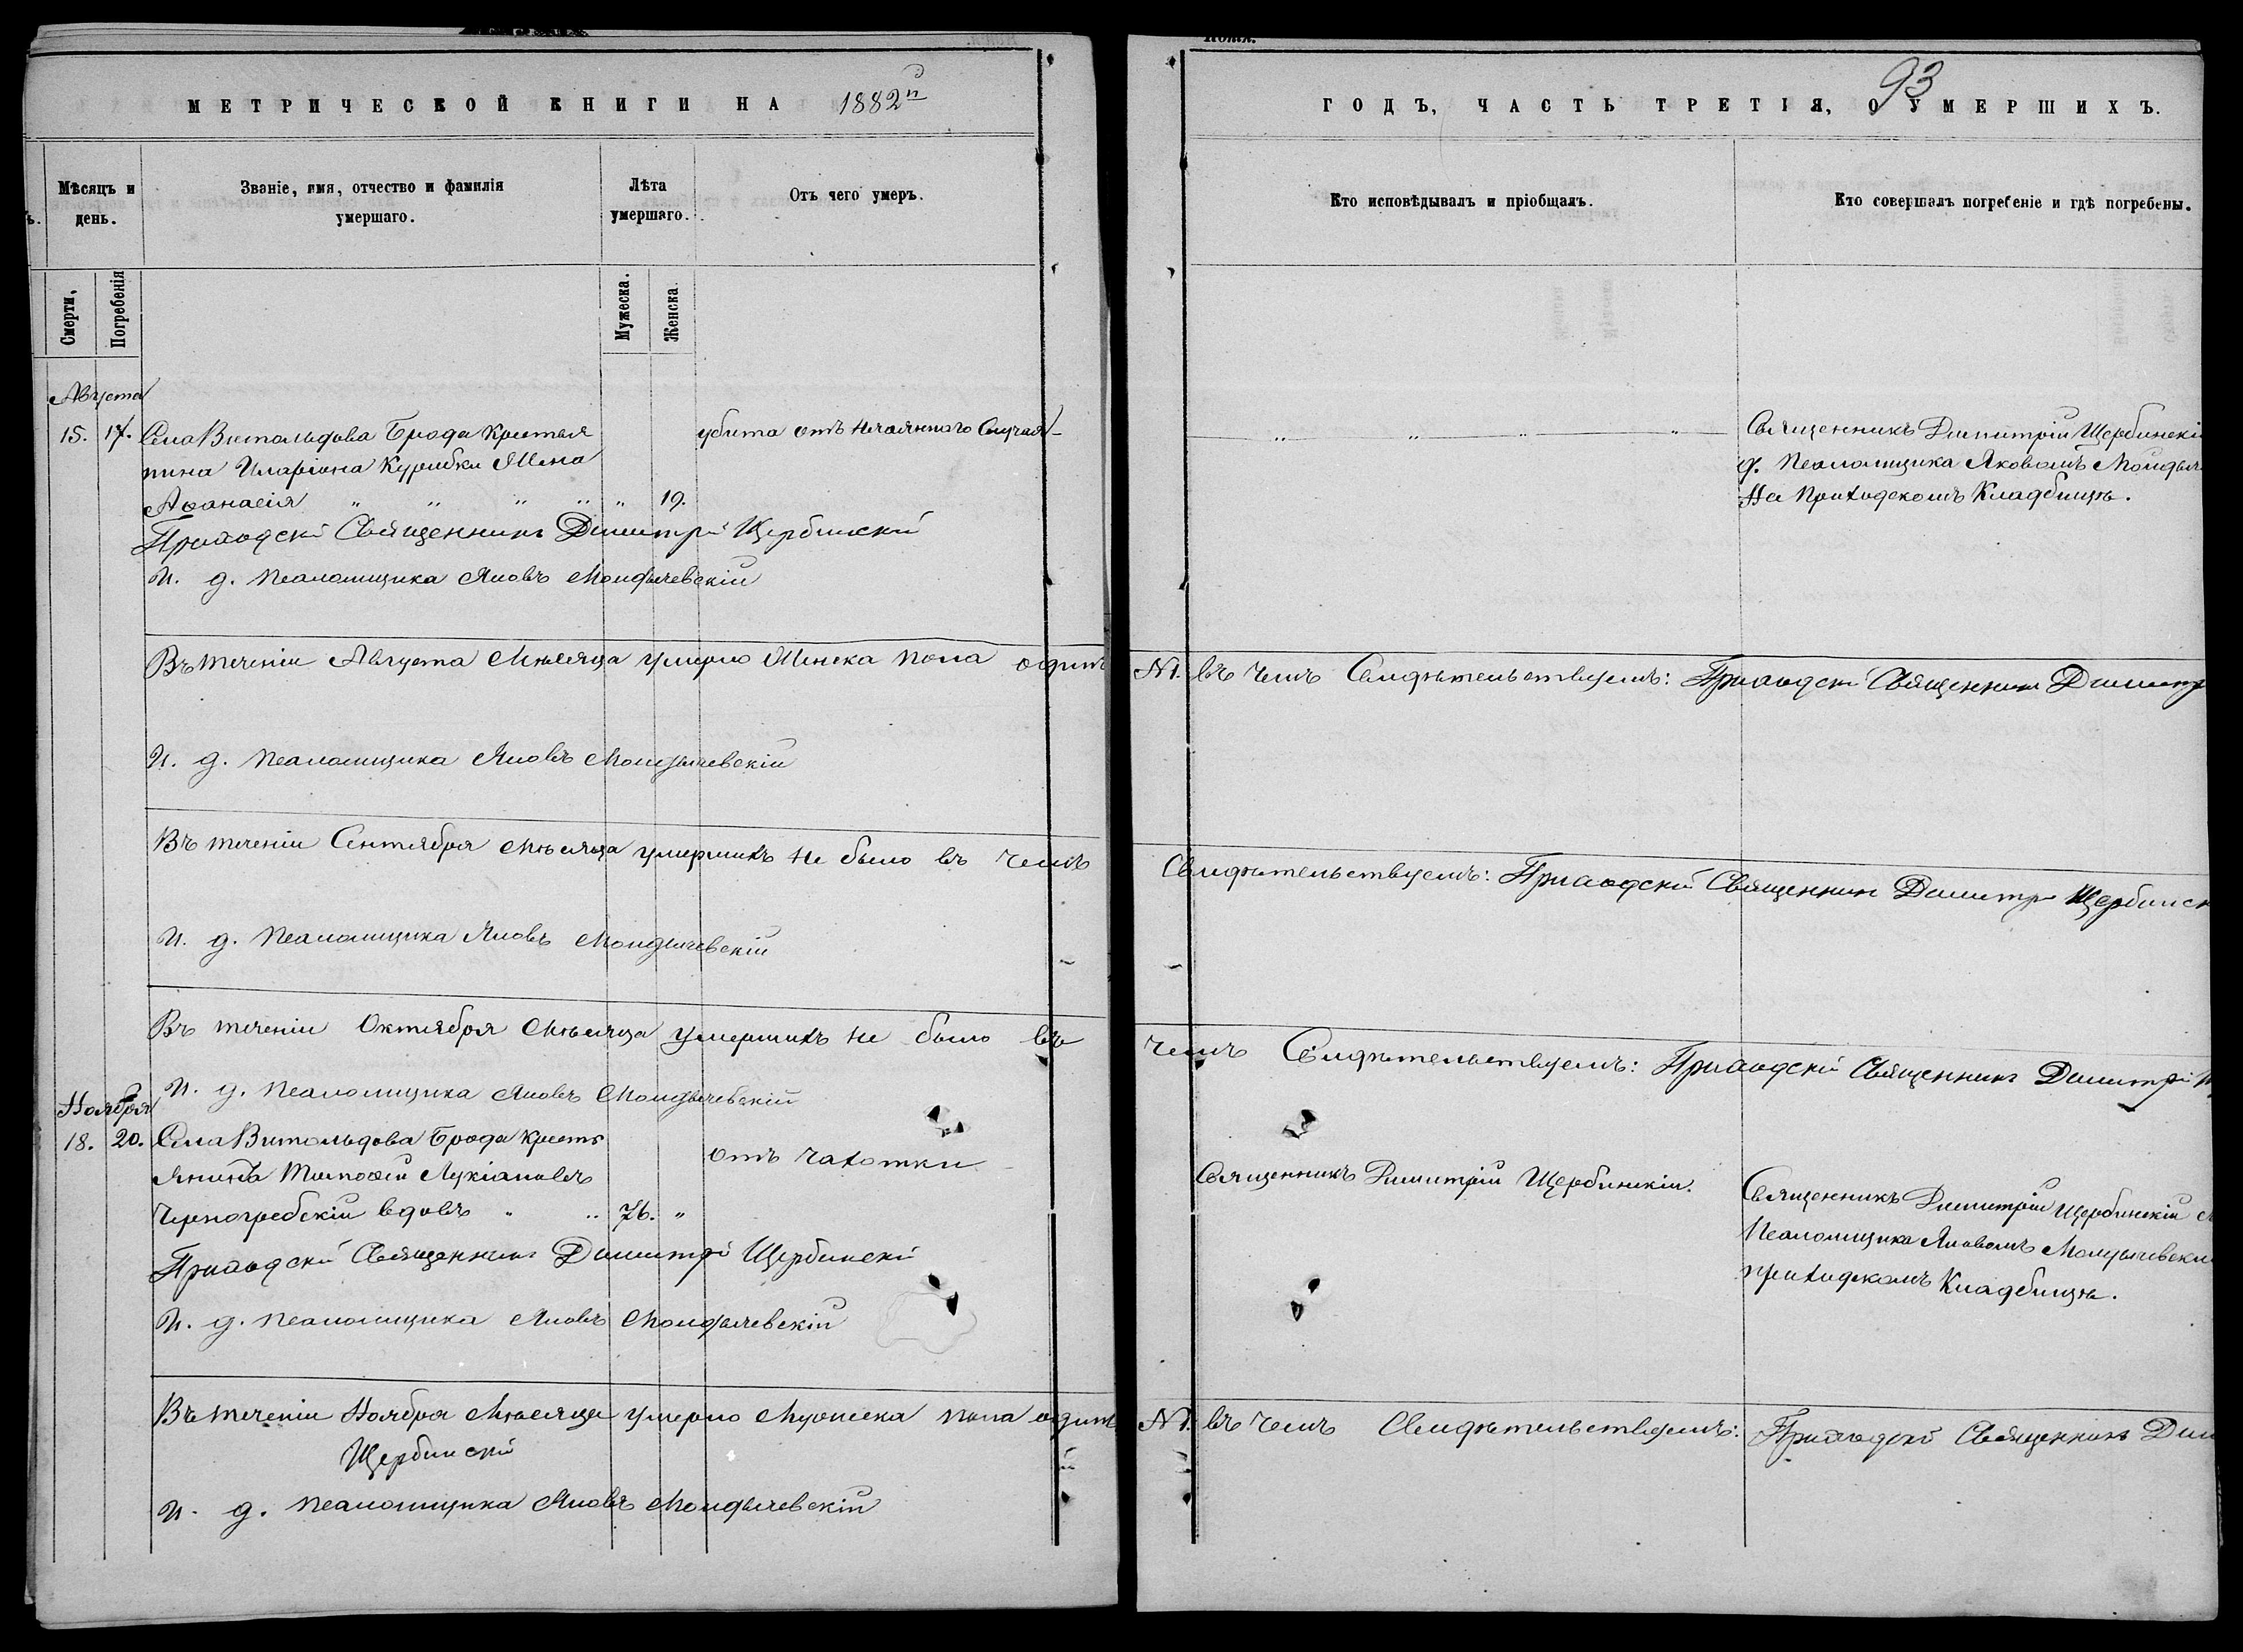 МЕТРИЧЕСКОЙ КНИГИ НА 1882й
Мѣсяцъ и день.
Званіе, имя, отчество и фамилія умершаго.
Лѣта умершаго.
Отъ чего умеръ.
Смерти,
Погребенія
Мужеска.
Женска.
Августа
15. 17. Села Витольдова Брода Крестья убита отъ нечаяннаго Случая
нина Иларіона Курибки Жена
Аѳанасія " " " " " 19.
Приходскій Священникъ Димитрій Щербинскій
И. д. псаломщика Яковъ
Въ теченіи Августа Мѣсяца умерло Женска пола одинъ
И. д. псаломщика Яковъ
Въ теченіи Сентября Мѣсяца умершихъ не было въ чемъ
И. д. псаломщика Яковъ
Въ теченіи Октября Мѣсяца умершихъ не было въ
И. д. псаломщика Яковъ
Ноября
18. 20. Села Витольдова Брода Кресть
янинъ Тимоѳей Лукіановъ отъ чахотки
Черногребскій вдовъ " " 76. "
Приходскій Священникъ Димитрій Щербинскій
И. д. псаломщика Яковъ
Въ теченіи Ноября Мѣсяца умерло Мужеска пола одинъ
Щербинскій
И. д. псаломщика Яковъ
93
ГОДЪ, ЧАСТЬ ТРЕТІЯ, О УМЕРШИХЪ.
Кто исповѣдывалъ и пріобщалъ.
Кто совершалъ погребеніе и гдѣ погребены.
" " " "
Священникъ Димитрій Щербинскі
д. Псаломщика Яковомъ
На Приходскомъ Кладбищѣ.
№1. въ чемъ Свидѣтельствуемъ: Приходскій Священникъ Димитр
Свидѣтельствуемъ: Приходскій Священникъ Димитрій Щербинск
чемъ Свидѣтельствуемъ: Приходскій Священникъ Димитрій
Священникъ Димитрій Щербинскій.
Священникъ Димитрій Щербинскій
Псаломщика Яковомъ
приходскомъ Кладбищѣ.
№1. въ чемъ Свидѣтельствуемъ: Приходскій Священникъ Дим